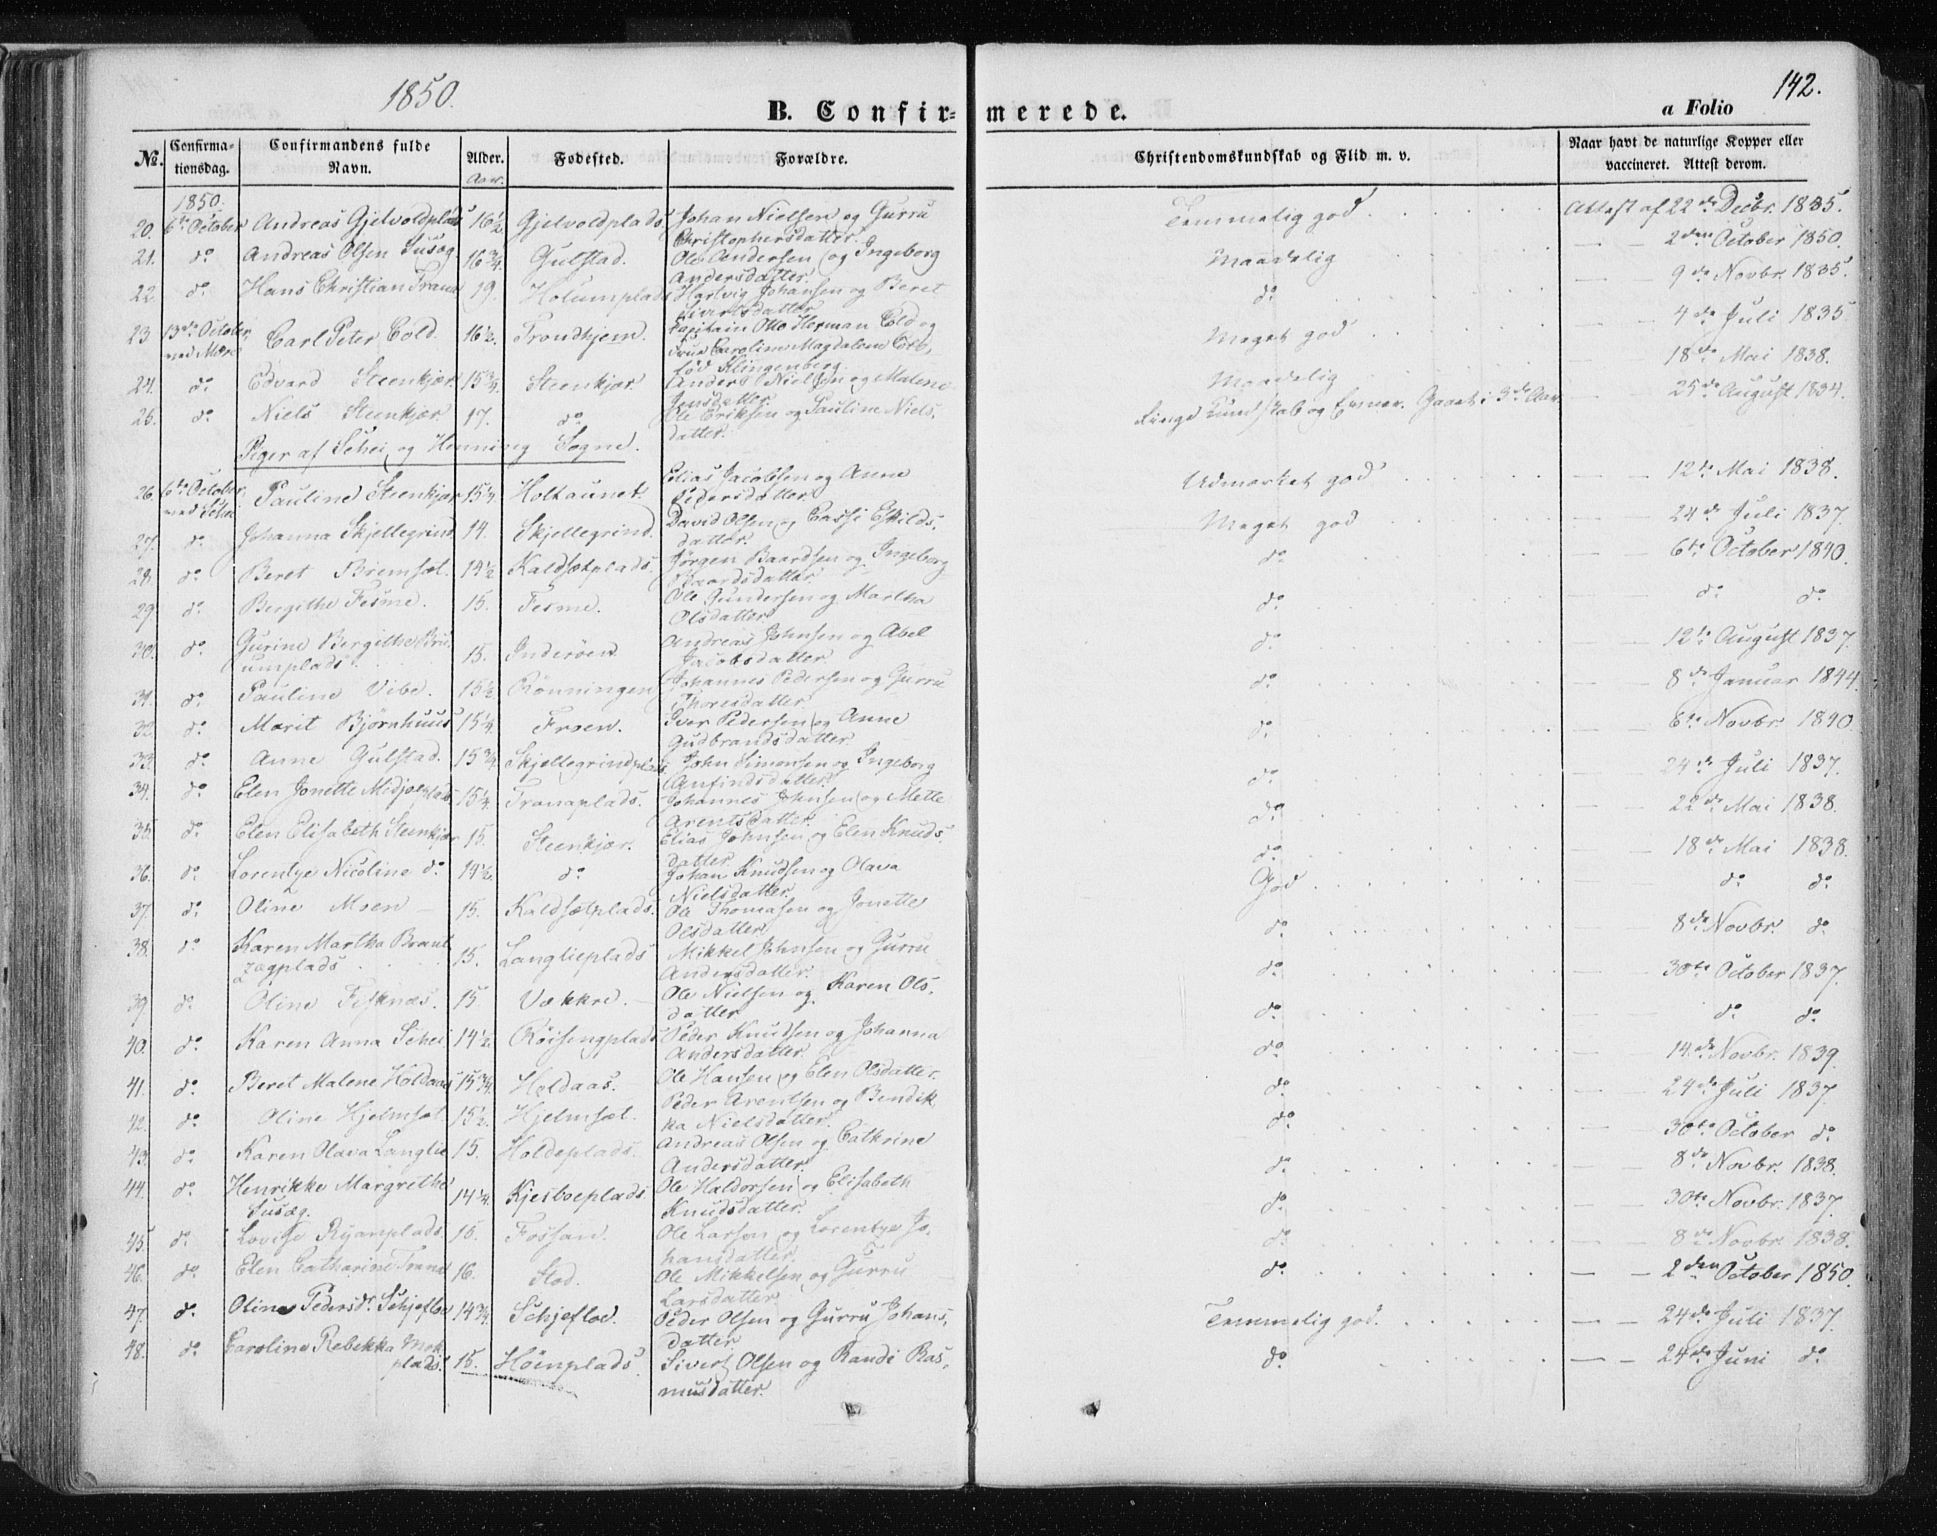 1850.
142.
B. Confirmerede.
a Folio
No. Confirmationsdag. Confirmandens fulde Navn. Alder. Aar. Fødested. Forældre. Christendomskundskab og Flid m. v. Naar havt de naturlige Kopper eller vaccineret. Attest derom.
1850.
20. 6te October Andreas Gjelvoldplads 16½ Gjelvoldplads Johan Nielsen og Gurru Christophersdatter. Temmelig god Attest af 22de Decbr. 1835.
21. do Andreas Olsen Susæg 16¾ Gulstad. Ole Andersen og Ingeborg Andersdatter. Maadelig — — 2den October 1850.
22. do Hans Christian Trana 19. Holumplads Hartvig Johansen og Beret Sivertsdatter. do — — 9de Novbr. 1835.
23 13de October med Mære Carl Peter Cold. 16½. Trondhjem. Capitain Otto Herman Cold og Frue Caroline Magdalene Cold, fød Klingenberg. Meget god — — 4de Juli 1835
24. do Edvard Steenkjær. 15¾. Steenkjær Anders Nielsen og Malene Jensdatter. Maadelig — — 18de Mai 1838.
25. do Niels Steenkjær. 17. do Ole Eriksen og Pauline Nielsdatter. Ringe Kundskab og Evner. Gaaet i 3de Aar. — — 25de August 1834.
Piger af Schei og Henning Sogne.
26. 6te October med Schei Pauline Steenkjær 15¼ Holtaunet. Elias Jacobsen og Anne Pedersdatter. Udmærket god — — 12te Mai 1838.
27. do Johanna Skjellegrind. 14. Skjellegrind. David Olsen og Cassi Eskildsdatter. Meget god — — 24de Juli 1837.
28. do Beret Bremset. 14½ Kaldsætplads. Jørgen Baardsen og Ingeborg Baardsdatter. do — — 6te October 1840.
29. do Bergithe Fesme. 15. Fesme. Ole Gundersen og Martha Olsdatter do. do do
30. do Gurine Bergithe umplads. 15. Inderøen Andreas Johnsen og Abel Jacobsdatter do — — 12te August 1837.
31. do Pauline Vibe. 15½ Rønningen Johannes Pedersen og Gurru Thoresdatter do. — — 8de Januar 1844.
32. do Marit Bjørnhuus 15¼ Froen. Iver Pedersen og Anne Gudbrandsdatter. do. — — 6te Novbr. 1840.
33. do Anne Gulstad. 15¾ Skjellegrindplads John Simonsen og Ingeborg Anfindsdatter. do. — — 24de Juli 1837.
34. do Elen Jonette Midjoplads 15¼. Tranaplads. Johannes Johnsen og Mette Arentsdatter. do. — — 22de Mai 1838.
35. do Elen Elisabeth Steenkjær 15. Steenkjær. Elias Johnsen og Elen Knudsdatter. do. — — 18de Mai 1838.
36. do Lorentze Nicoline do. 14½. do. Johan Knudsen og Olava Nielsdatter. God do. do.
37. do Oline Moen — 15. Kaldsætplads. Ole Thomasen og Jonette Olsdatter do — — 8de Novbr. do.
38. do Karen Martha Brautzægplads 15. Langlieplads Mikkel Johnsen og Gurru Andersdatter. do — — 30te October 1837.
39. do Oline Fisknæs. 15. Vækkre. Ole Nielsen og Karen Olsdatter do do. do.
40. do. Karen Anna Schei 14½. Røisengplads Peder Knudsen og Johanna Andersdatter. do — — 14de Novbr. 1839.
41. do Beret Malene Holdaas 15¾ Holdaas. Ole Hansen og Elen Olsdatter. do. — — 24de Juli 1837.
42. do Oline Hjelmset 15½. Hjelmset. Peder Arentsen og Bendikka Nielsdatter. do. — — 30te October do.
43. do. Karen Olava Langlie 15. Holdeplads. Andreas Olsen og Cathrine Andersdatter. do. — — 8de Novbr. 1838.
44. do. Henrikke Margrethe Susæg. 14¼. Kjesboeplads Ole Haldorsen og Elisabeth Knudsdatter. do. — — 30te Novbr. 1837.
45. do. Lovise Ryamplads. 15. Fossan. Ole Larsen og Lorentze Johansdatter. do. — — 8de Novbr. 1838.
46. do. Elen Catharine Trana 16. Stod. Ole Mikkelsen og Gurru Larsdatter do. — — 2den October 1850.
47. do. Oline Pedersdr. Schjefloe 14¾. Schjefloe. Peder Olsen og Gurru Johansdatter Temmelig god. — — 24de Juli 1837.
48. do Caroline Rebekka Mokplads. 15. Høinplads. Sivert Olsen og Randi Rasmusdatter. do. — — 24de Juni do